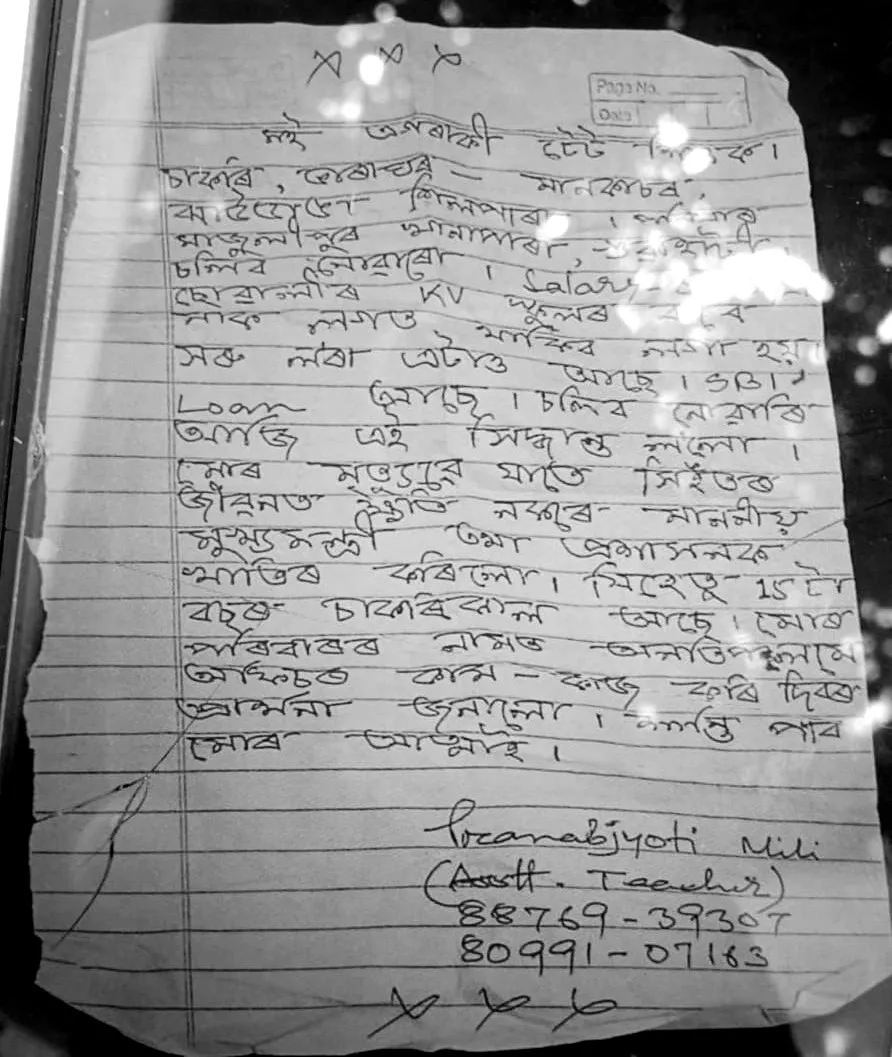 × × ×
Page No.
Date
মই এগৰাকী টেট শিক্ষক।
চাকৰি, মানকাচৰ,
শিলপাৰা।
মাজুলী খানাপাৰা,
চলিব নোৱাৰো। Salary
ছোৱালীৰ KV স্কুলৰ বাবে
লগত থাকিব লগা হয়।
সৰু লৰা এটাও আছে। SBI ত
Loan আছে। চলিব নোৱাৰি
আজি এই সিদ্ধান্ত ললো।
মোৰ মৃত্যুৱে যাতে সিহঁতৰ
জীৱনত নকৰে মাননীয়
মুখ্যমন্ত্ৰী তথা প্ৰশাসনক
খাতিৰ কৰিলো। যিহেতু 15 টা
বছৰ চাকৰিকাল আছে। মোৰ
পৰিবাৰৰ নামত অনতিপলমে
অফিচৰ কাম-কাজ কৰি দিবৰ
প্ৰাৰ্থনা জনালো। শান্তি পাব
মোৰ আত্মাই।
Pranabjyoti Mili
(Asstt. Teacher)
88769-39307
80991-07163
× × ×